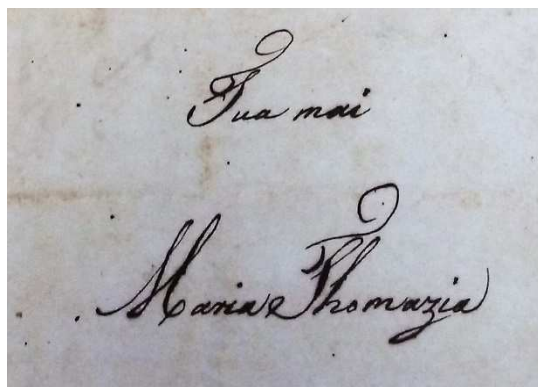 Tua mai
Maria Thomazia